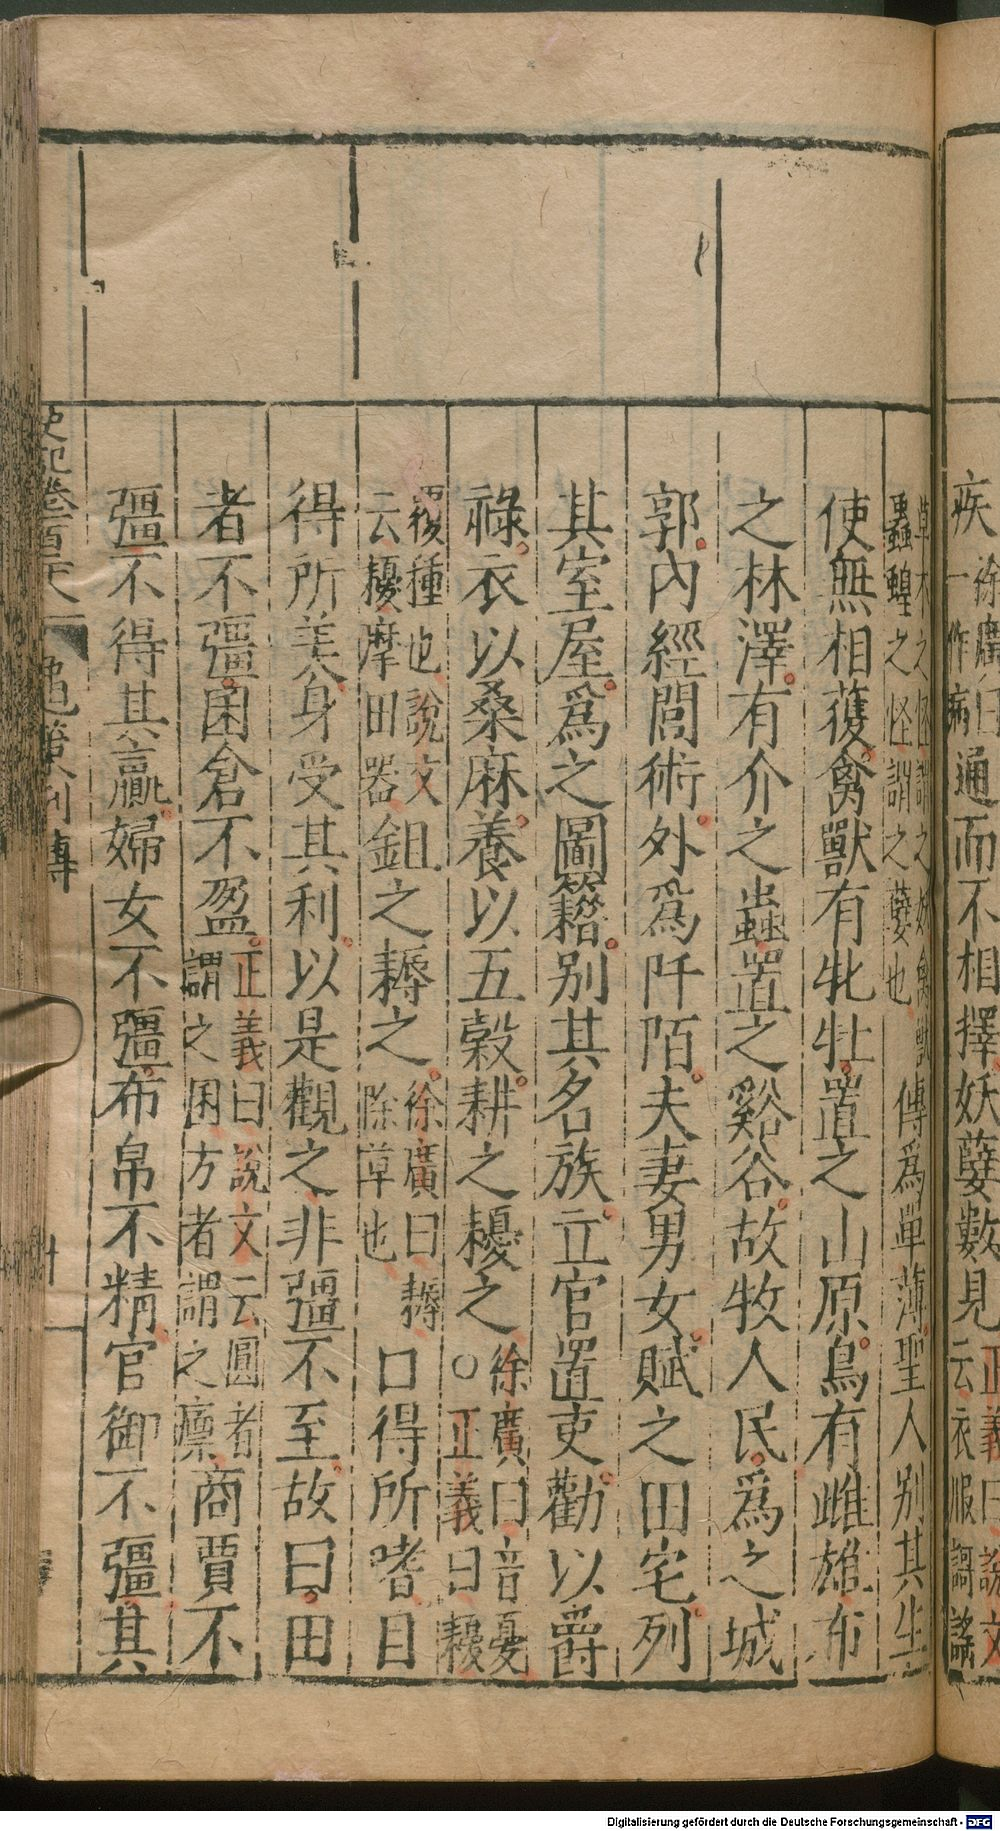 疾徐廣曰一作病通而不相擇妖孽數見正義曰說文云衣服謌謠
草木之怪謂之妖禽獸蟲蝗之怪謂之孽也傳爲單薄聖人別其生
使無相獲禽獸有牝牡置之山原鳥有雌雄布
之林澤有介之蟲置之谿谷故牧人民爲之城
郭內經閭術外爲阡陌夫妻男女賦之田宅列
其室屋爲之圖籍別其名族立官置吏勸以爵
祿衣以桑麻養以五穀耕之耰之○徐廣曰音憂正義曰耰
覆種也說文云耰摩田器鉏之耨之徐廣曰耨除草也口得所嗜目
得所美身受其利以是觀之非彊不至故曰田
者不彊囷倉不盈正義曰說文云圓者謂之囷方者謂之廩商賈不
彊不得其贏婦女不彊布帛不精官御不彊其
史記卷百
龜策列傳
Digitalisierung gefördert durch die Deutsche Forschungsgemeinschaft - DFG